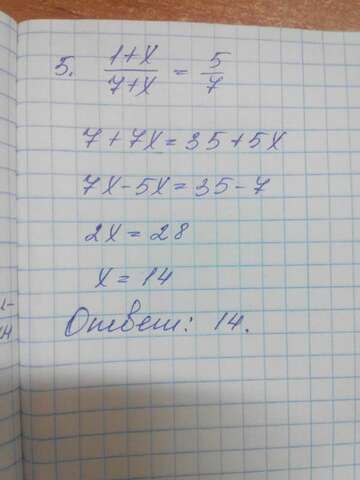 5. (1+x)/(7+x) = 5/7
7 + 7x = 35 + 5x
7x - 5x = 35 - 7
2x = 28
x = 14
Ответ: 14.